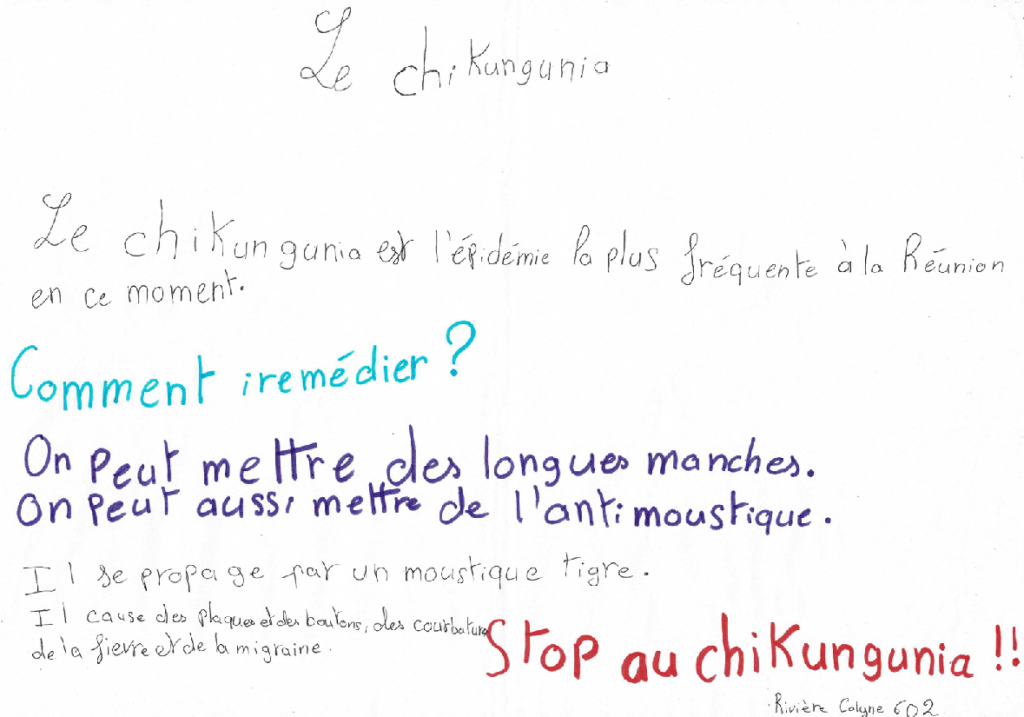 Le chikungunia
Le chikungunia est l'épidémie la plus fréquente à la Réunion
en ce moment.
Comment iremédier ?
On peut mettre des longues manches.
On peut aussi mettre de l'antimoustique.
Il se propage par un moustique tigre.
Il cause des plaques et des boutons, des courbature
de la fievre et de la migraine.
Stop au chikungunia !!
Rivière 602